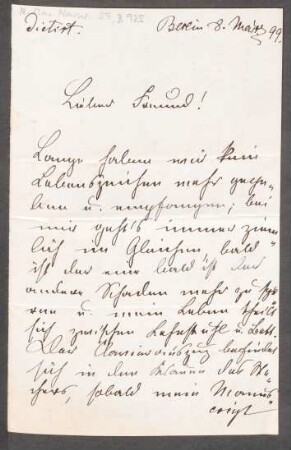 Dictirt. Berlin 8. März 99.
Lieber Freund!
Lange haben wir kein
Lebenszeichen mehr gege-
ben u. empfangen; bei
mir geht's immer ziem-
lich im Gleichen bald
ist der eine bald ist der
andere Schaden mehr zu spü-
ren u. mein Leben theilt
sich zwischen Lehnstuhl u. Bett.
Der Clavierauszug befindet
sich in den Klauen des Ste-
chers, sobald mein Manus-
cript